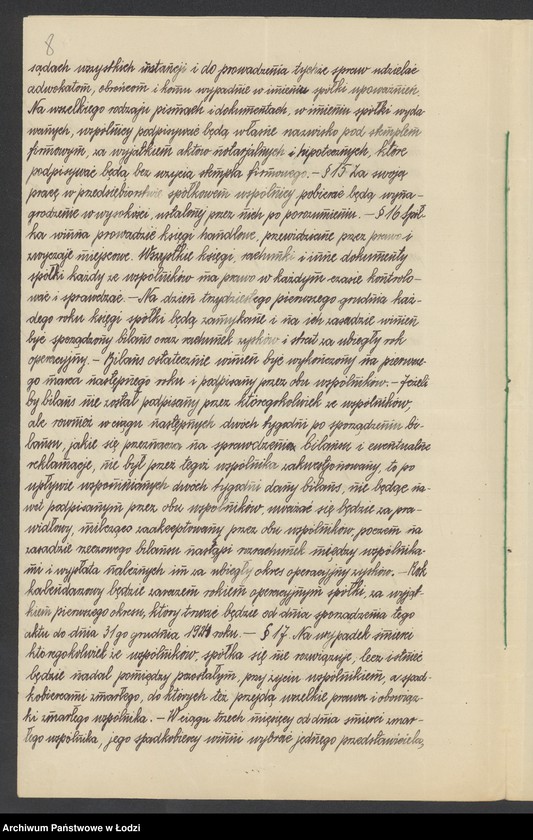 8
sądach wszystkich instancji i do prowadzenia tychże spraw udzielać
adwokatom, obrońcom i komu wypadnie w imieniu spółki upoważnień.
Na wszelkiego rodzaju pismach i dokumentach, w imieniu spółki wyda
wanych, wspólnicy podpisywać będą własne nazwisko pod stemplem
firmowym, za wyjątkiem aktów notarjalnych i hipotecznych, które
podpisywać będą bez użycia stempla firmowego. — § 15 Za swoją
pracę w przedsiębiorstwie spółkowem wspólnicy pobierać będą wyna-
grodzenie w wysokości, ustalonej przez nich po porozumieniu. — § 16 Spół-
ka winna prowadzić księgi handlowe, przewidziane przez prawo i
zwyczaje miejscowe. Wszystkie księgi, rachunki i inne dokumenty
spółki każdy ze wspólników ma prawo w każdym czasie kontrolo-
wać i sprawdzać. — Na dzień trzydziestego pierwszego grudnia każ-
dego roku księgi spółki będą zamykane i na ich zasadzie winien
być sporządzony bilans oraz rachunek zysków i strat za ubiegły rok
operacyjny. — Bilans ostatecznie winien być wykończony na pierwsze-
go marca następnego roku i podpisany przez obu wspólników. — Jeżeli
by bilans nie został podpisany przez któregokolwiek ze wspólników,
ale również w ciągu następnych dwóch tygodni po sporządzeniu bi-
lansu, jakie się przeznacza na sprawdzenie bilansu i ewentualne
reklamacje, nie był przez tegoż wspólnika zakwestjonowany, to po
upływie wspomnianych dwóch tygodni dany bilans, nie będąc na-
wet podpisanym przez obu wspólników, uważać się będzie za pra-
widłowy, milcząco zaakceptowany przez obu wspólników, poczem na
zasadzie rzeczowego bilansu nastąpi rozrachunek między wspólnika-
mi i wypłata należnych im za ubiegły okres operacyjny zysków. — Rok
kalendarzowy będzie zarazem rokiem operacyjnym spółki, za wyjąt-
kiem pierwszego okresu, który trwać będzie od dnia sporządzenia tego
aktu do dnia 31go grudnia roku. — § 17 Na wypadek śmierci
któregokolwiek ze wspólników, spółka się nie rozwiązuje, lecz istnieć
będzie nadal pomiędzy pozostałym, przy życiu wspólnikiem, a spad-
kobiercami zmarłego, do których też przejdą wszelkie prawa i obowiąz-
ki zmarłego wspólnika. — W ciągu trzech miesięcy od dnia śmierci zmar-
łego wspólnika, jego spadkobiercy winni wybrać jednego przedstawiciela,
Archiwum Państwowe w Łodzi